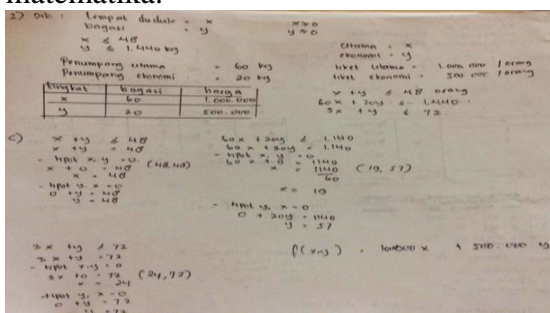 matematika.
2) Dik : tempat duduk = x
bagasi = y
x ≤ 48
y ≤ 1.440 kg
x ≥ 0
y ≥ 0
Penumpang utama = 60 kg
Penumpang ekonomi = 20 kg
Utama = x
ekonomi = y
tiket utama = 1.000.000 / orang
tiket ekonomi = 500.000 / orang
tingkat bagasi harga
x 60 1.000.000
y 20 500.000
x + y ≤ 48 orang
60x + 20y ≤ 1.440
3x + y ≤ 72
c) x + y ≤ 48
x + y = 48
- tipot x, y = 0
x + 0 = 48 (48,48)
x = 48
- tipot y, x = 0
0 + y = 48
y = 48
60x + 20y ≤ 1.140
60x + 20y = 1.140
- tipot x, y = 0
60x + 0 = 1140
x = 1140
60
(19, 57)
x = 19
- tipot y, x = 0
0 + 20y = 1140
y = 57
3x + y ≤ 72
3x + y = 72
- tipot x, y = 0
3x + 0 = 72 (24,72)
x = 24
- tipot y, x = 0
0 + y = 72
y = 72
f(x,y) = x + 500.000 y